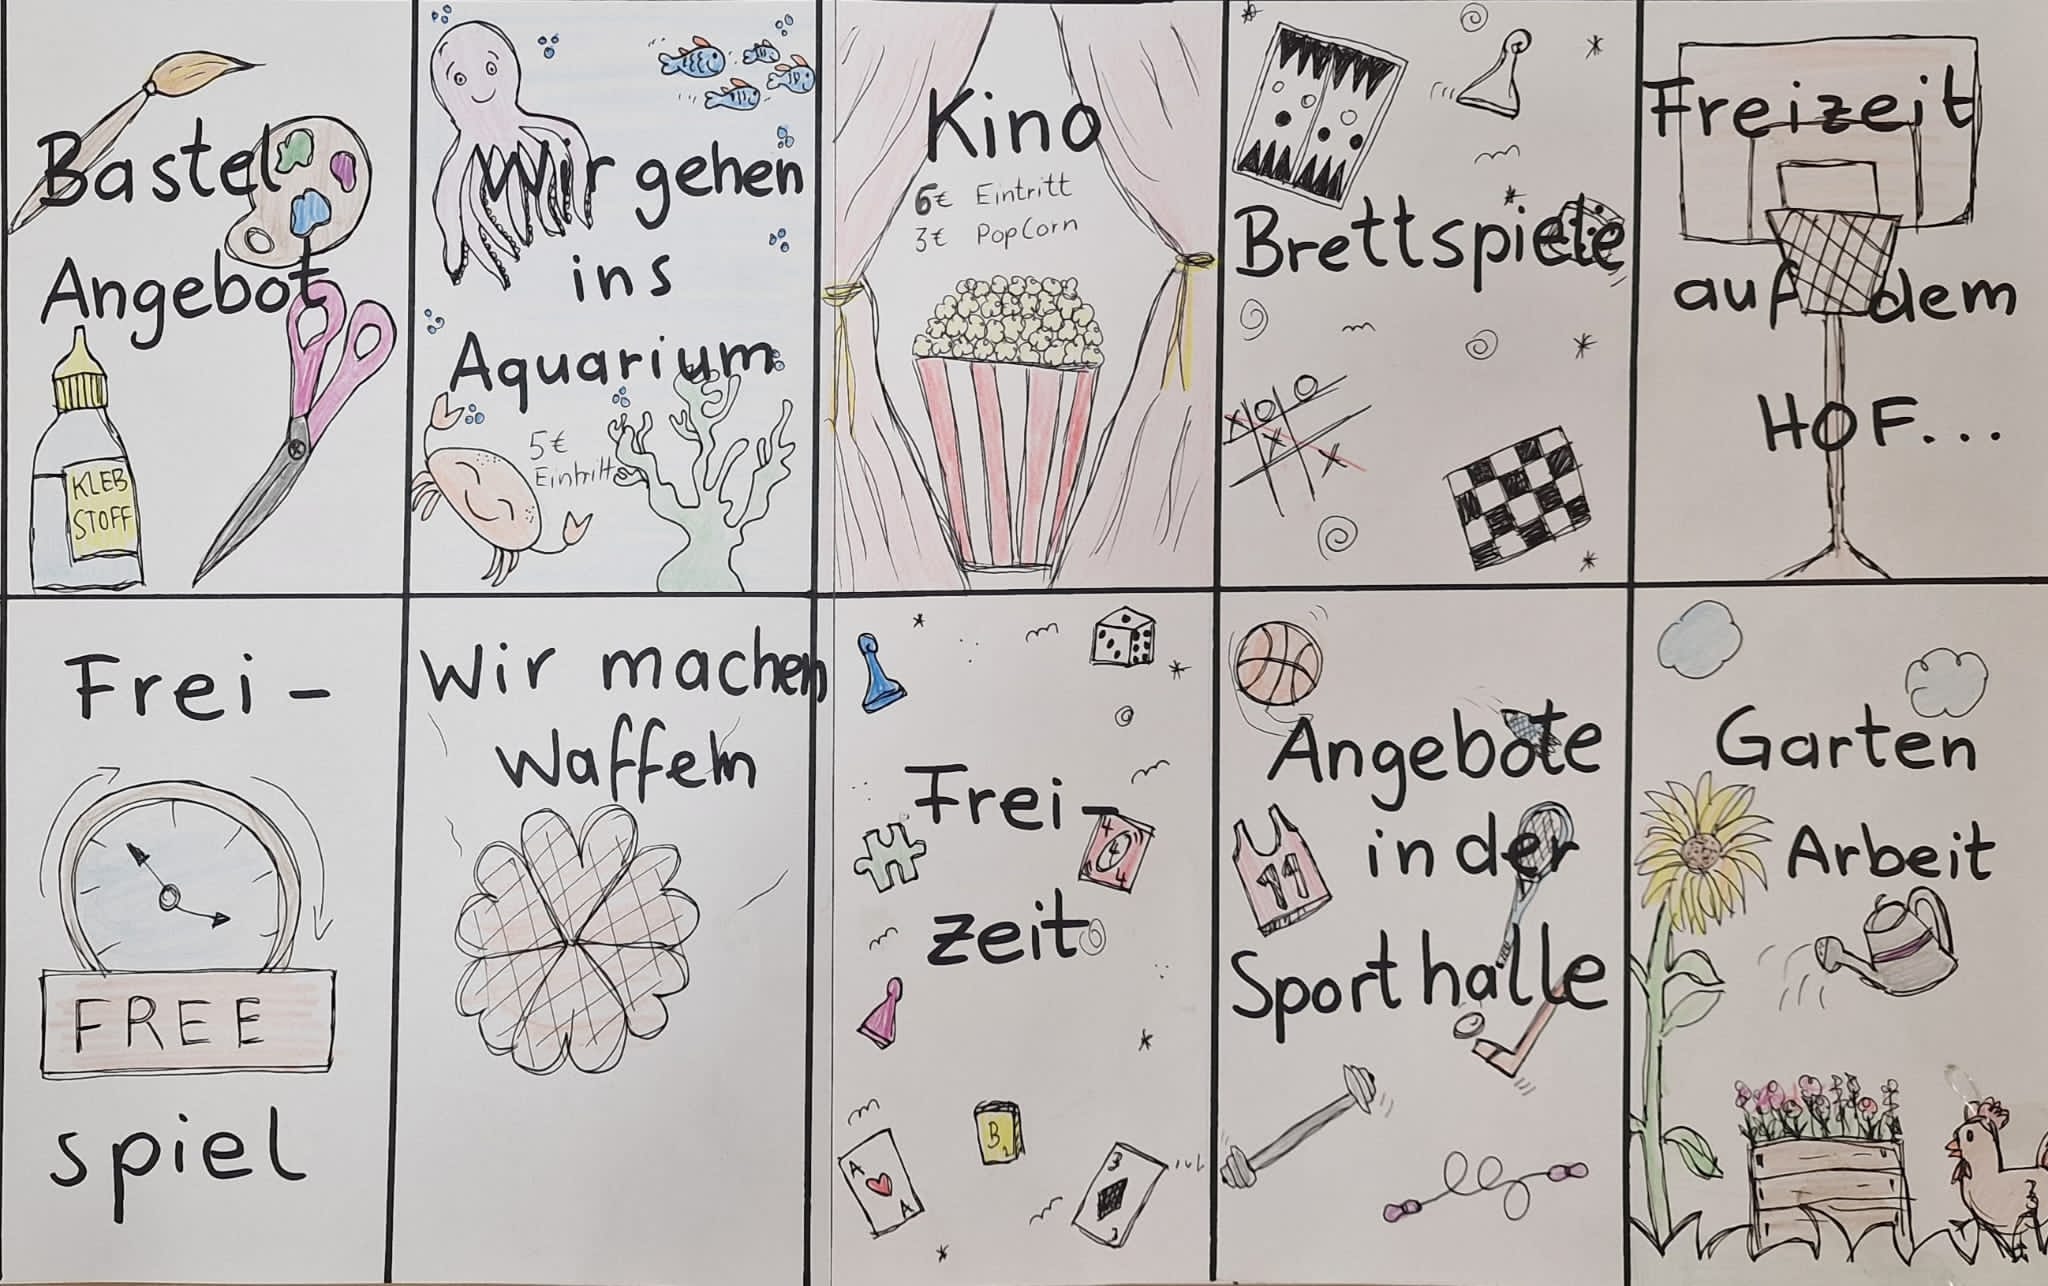 Bastel
Angebot
KLEB
STOFF
Wir gehen
ins
Aquarium
5€
Eintritt
Kino
6€ Eintritt
3€ PopCorn
Brettspiele
Freizeit
auf dem
HOF...
Frei-
FREE
spiel
Wir machen
Waffeln
Frei-
4
4
4
zeit
B
2
A
A
3
3
Angebote
in der
11
Sporthalle
Garten
Arbeit